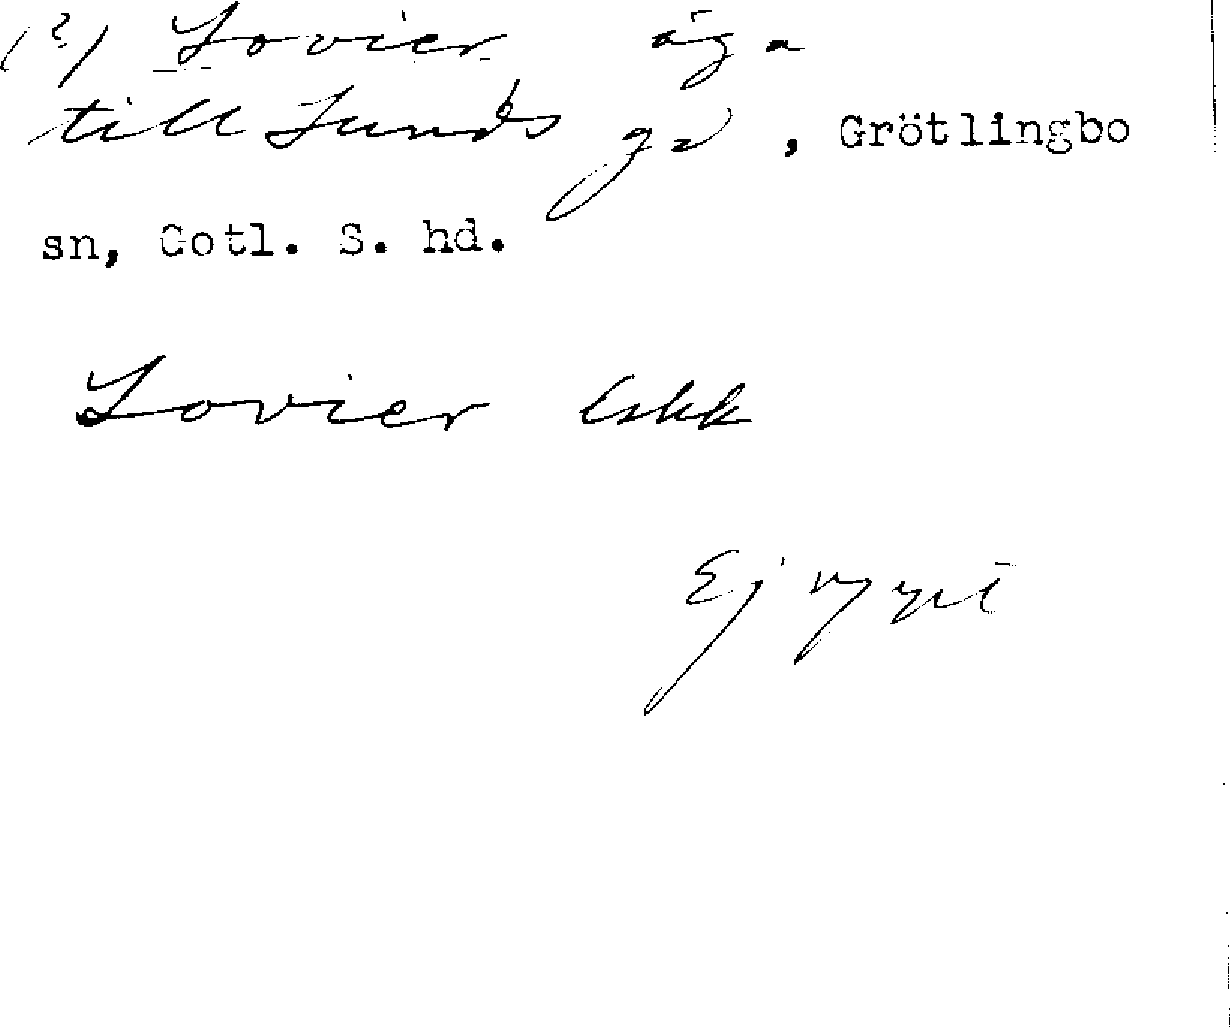 (?) Lovier äga
till Sunds gd, Grötlingbo
sn, Gotl. S. hd.
Lovier
Ej nytt